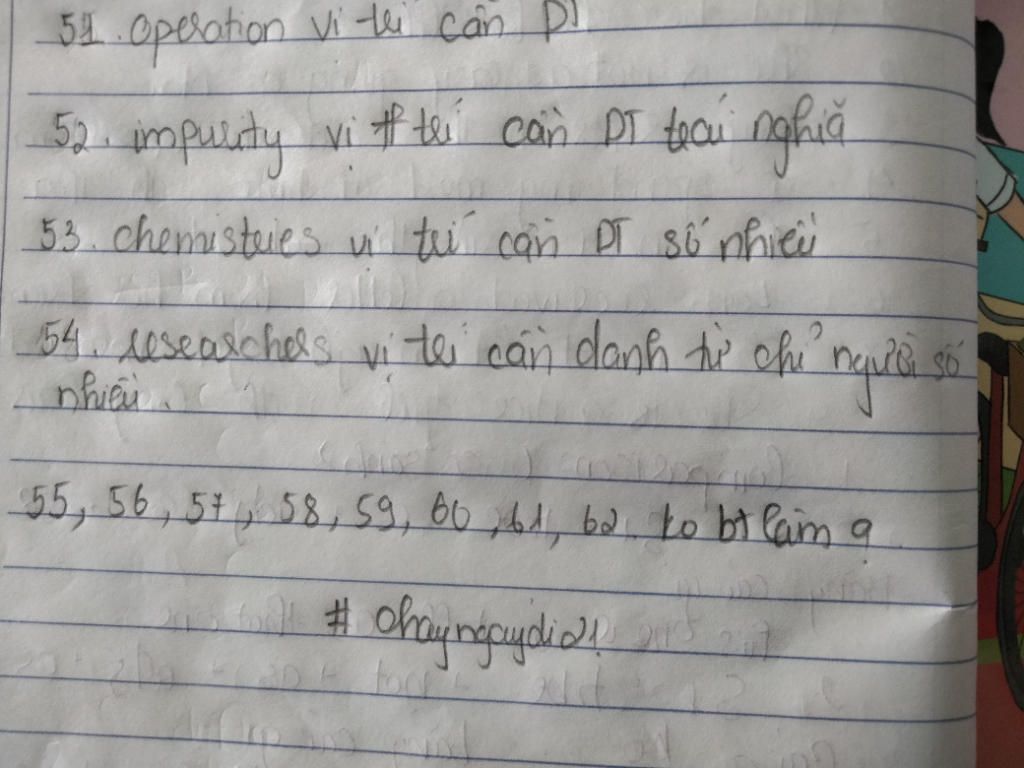 51. operation vị trí cần DT
52. impurity vị trí cần DT trái nghĩa
53. chemistries vị trí cần DT số nhiều
54. researchers vị trí cần danh từ chỉ người số
nhiều.
55, 56, 57, 58, 59, 60, 61, 62. ko bt làm ?
# Chayngaydi